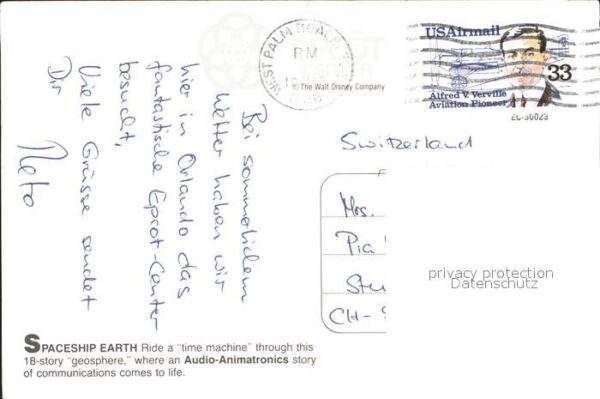 WEST PALM BEACH
PM
© The Walt Disney Company
USAirmail
33
Alfred V. Verville
Aviation Pioneer
Switzerland
Bei sommerlichem
Wetter haben wir
hier in Orlando das
fantastische Epcot-Center
besucht,
Viele Grüsse sendet
Dir
Reto
Mrs.
Pia
CH-
privacy protection
Datenschutz
SPACESHIP EARTH Ride a "time machine" through this
18-story "geosphere," where an Audio-Animatronics story
of communications comes to life.